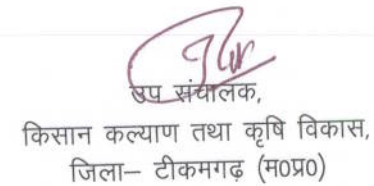 उप संचालक,
किसान कल्याण तथा कृषि विकास,
जिला– टीकमगढ़ (म0प्र0)